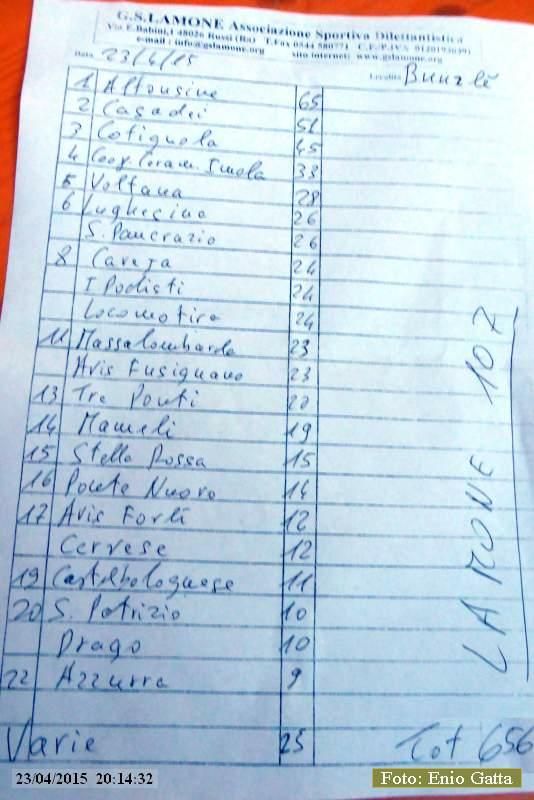 G.S.LAMONE Associazione Sportiva Dilettantistica
Via E.Babini,1 48026 Russi (Ra) T.Fax 0544 580771 C.F./P.IVA 01201930391
e-mail : info@gslamone.org sito internet: www.gslamone.org
Data 23/4/15 Località
1 Alfonsine 65
2 Casadei 51
3 Cotignola 45
4 Coop. Ceram. Imola 33
5 Voltana 28
6 Lughesino 26
S. Pancrazio 26
8 Caveja 24
I Podisti 24
Locomotiva 24
11 Massalombarda 23
Avis Fusignano 23
13 Tre Ponti 20
14 Mameli 19
15 Stella Rossa 15
16 Ponte Nuovo 14
17 Avis Forlì 12
Cervese 12
19 Castelbolognese 11
20 S. Patrizio 10
Drago 10
22 Azzurra 9
Varie 25 Tot 656
LAMONE 107
23/04/2015 20:14:32
Foto: Enio Gatta